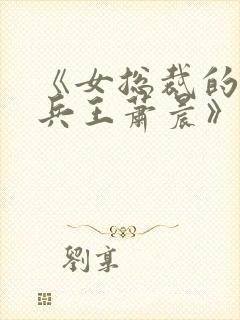 《女总裁的
兵王萧晨》
刘享